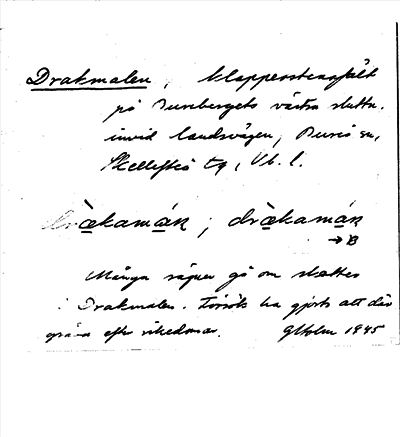 Drakmalen, klapperstensfält
på Burebergets västra sluttn.
invid landsvägen, Bureå sn,
Skellefteå tg, Vb. l.
drækamáṇ; drækamáṇ
→B
Många sägner gå om skatten
i Drakmalen. Försök ha gjorts att där
gräva efter rikedomar. G Holm 1945